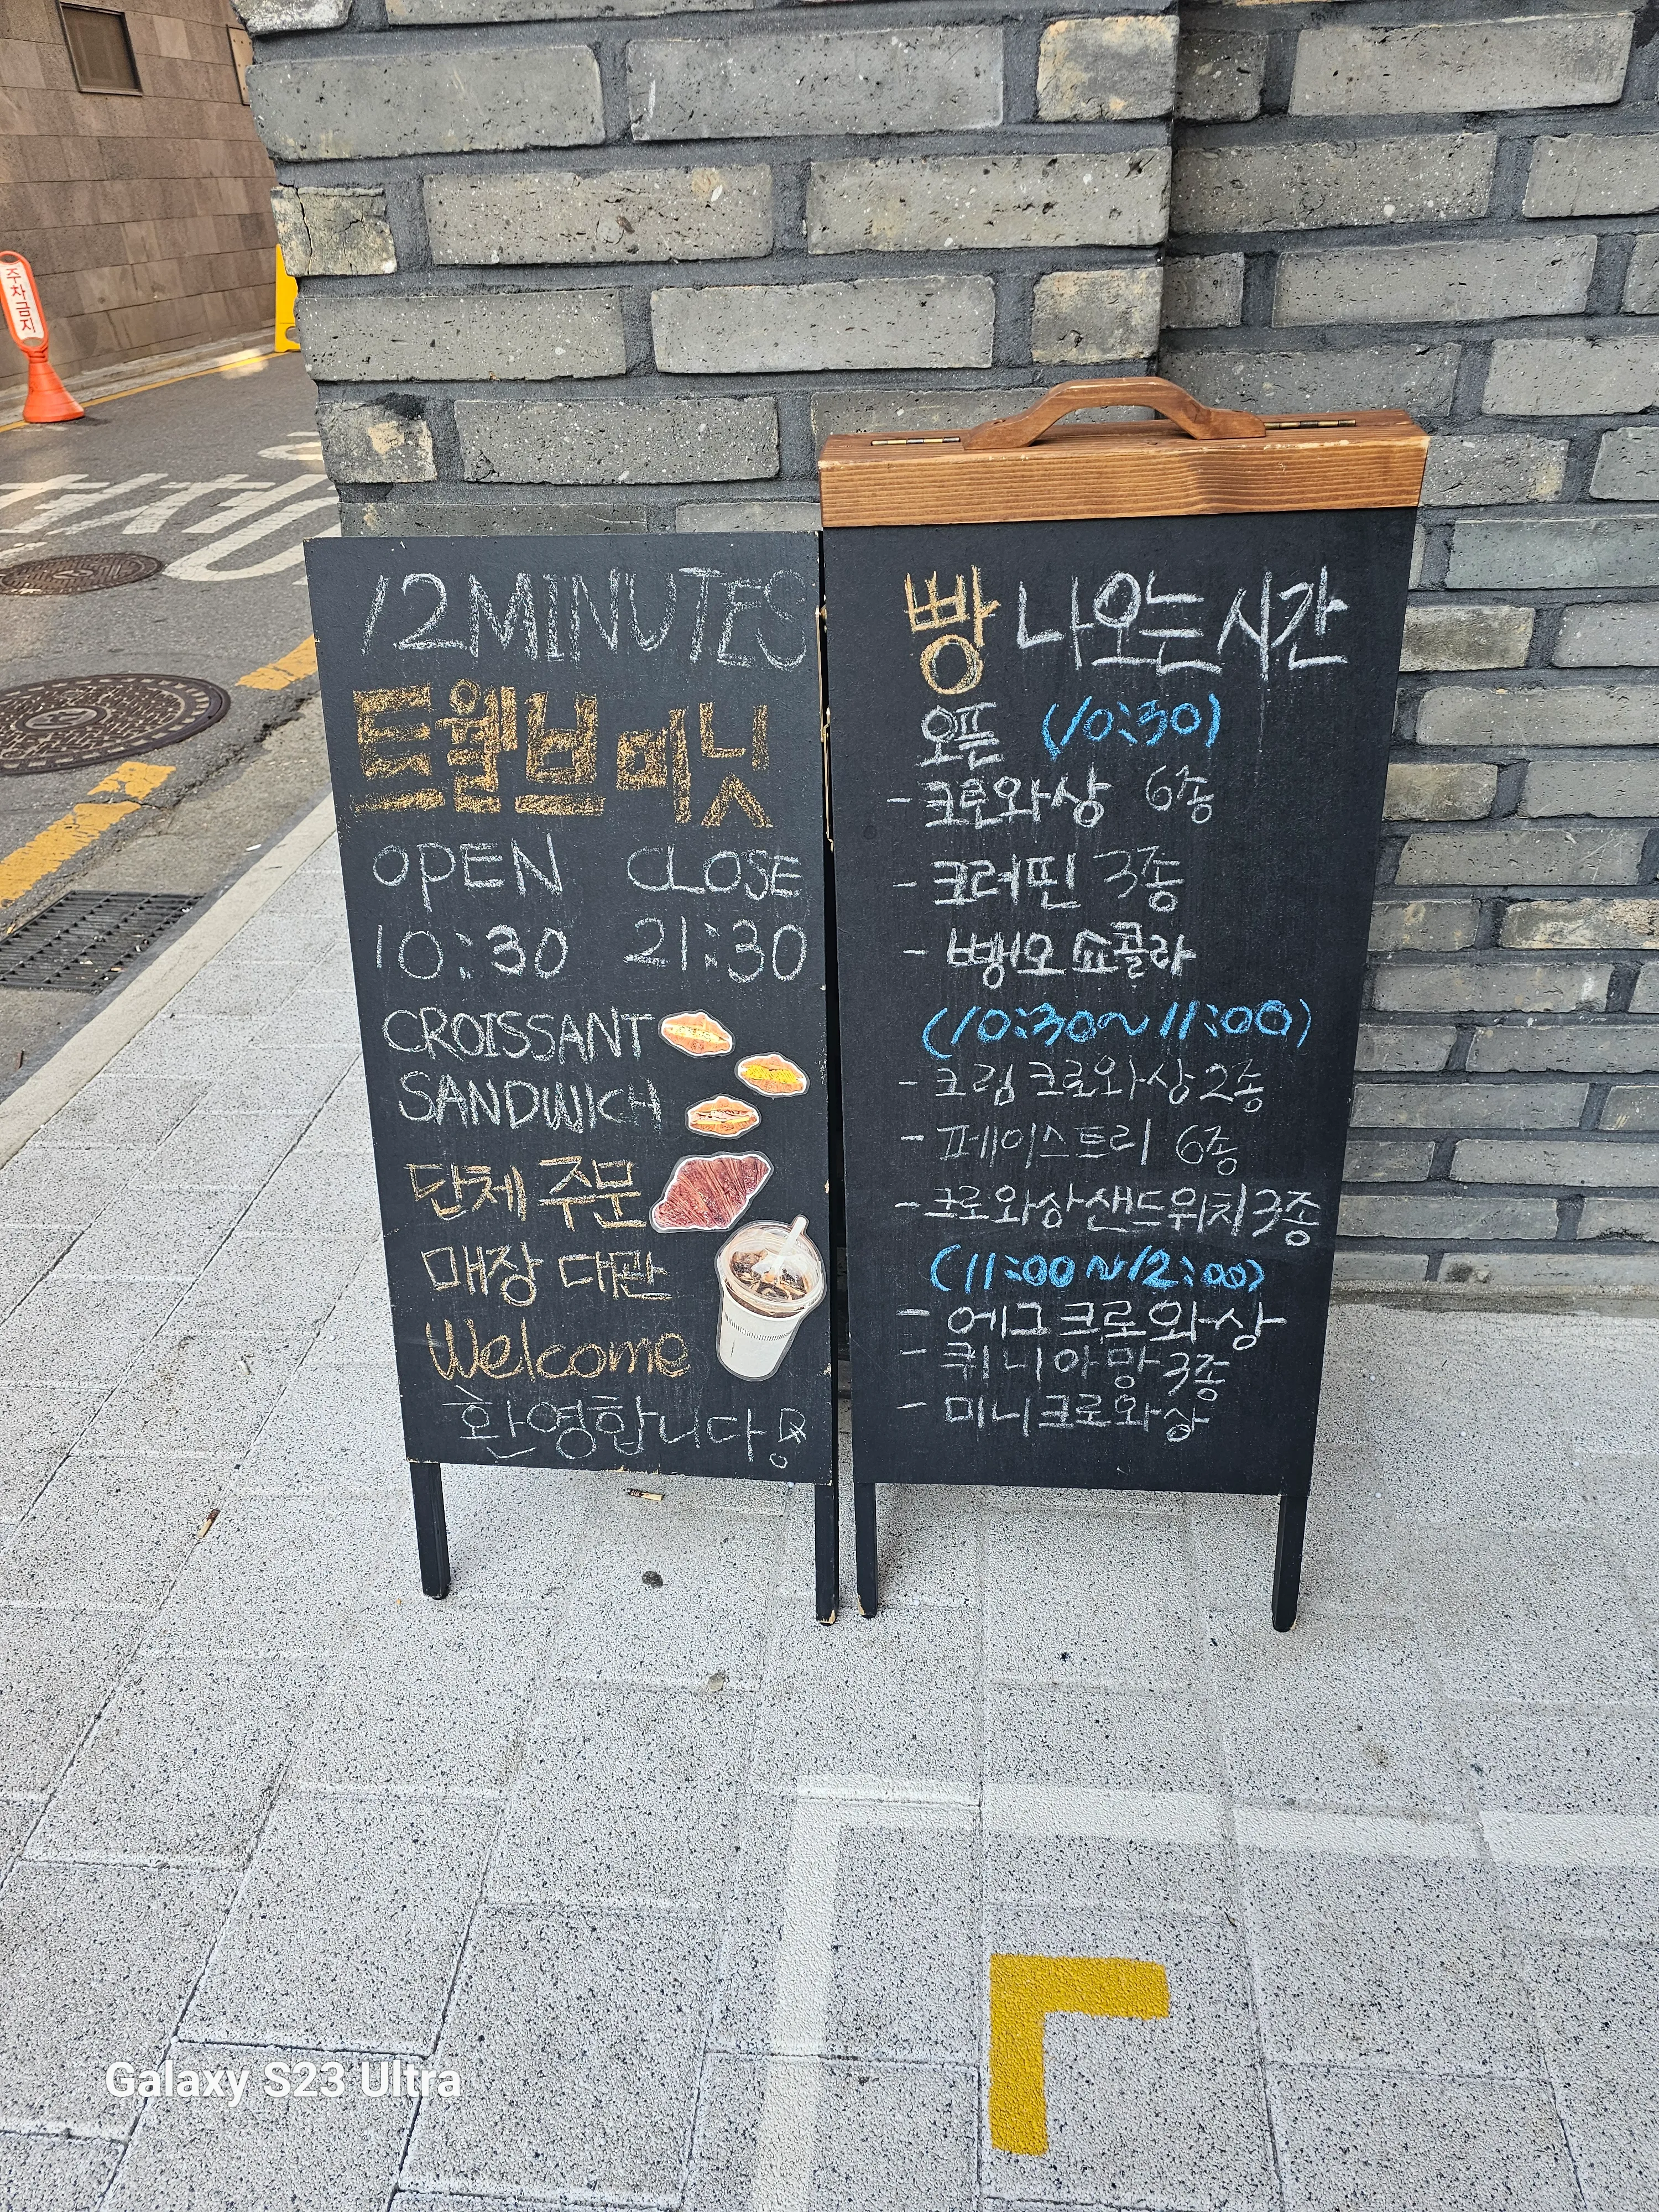 주차금지
12MINUTES
트웰브미닛
OPEN CLOSE
10:30 21:30
CROISSANT
SANDWICH
단체 주문
매장 대관
Welcome
환영합니다!
빵 나오는 시간
오픈 (10:30)
- 크로와상 6종
- 크러핀 3종
- 뺑오쇼콜라
(10:30~11:00)
- 크림 크로와상 2종
- 페이스트리 6종
- 크로와상샌드위치 3종
(11:00~12:00)
- 에그크로와상
- 퀴니아망 3종
- 미니크로와상
Galaxy S23 Ultra